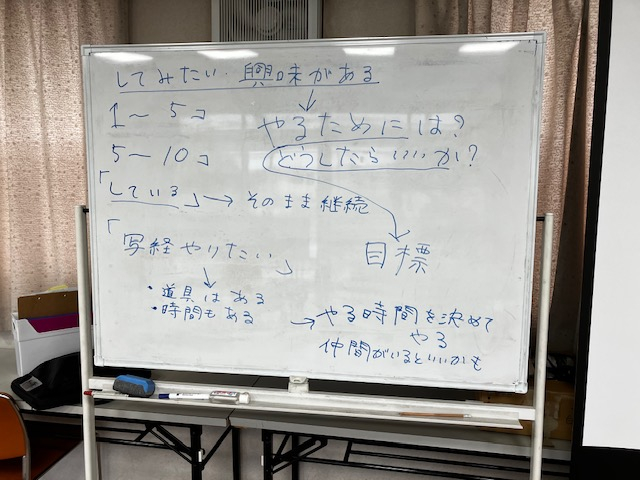 してみたい・興味がある
1〜5コ
やるためには?
5〜10コ
どうしたらいいか?
「している」→そのまま継続
「写経やりたい」
目標
・道具はある
・時間もある
→やる時間を決めて
やる
仲間がいるといいかも